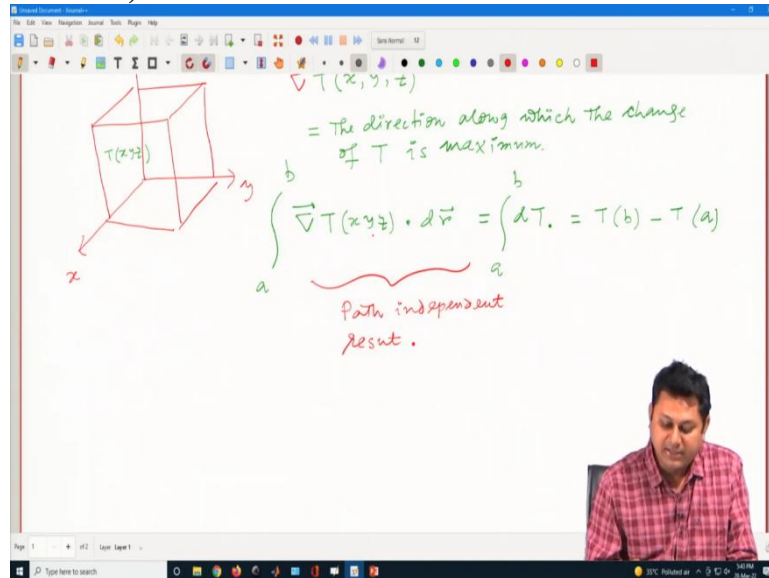 Unsaved Document - Xournal++
File Edit View Navigation Journal Tools Plugin Help
Sans Normal 12
∇ T (x, y, z)
= The direction along which the change
of T is maximum.
T(xyz)
y
x
b b
∫ ∇⃗ T (xyz) • dr⃗ = ∫ dT. = T(b) - T(a)
a a
Path independent
resut.
Page 1 of 2 Layer Layer 1
Type here to search
35°C Polluted air
5:40 PM